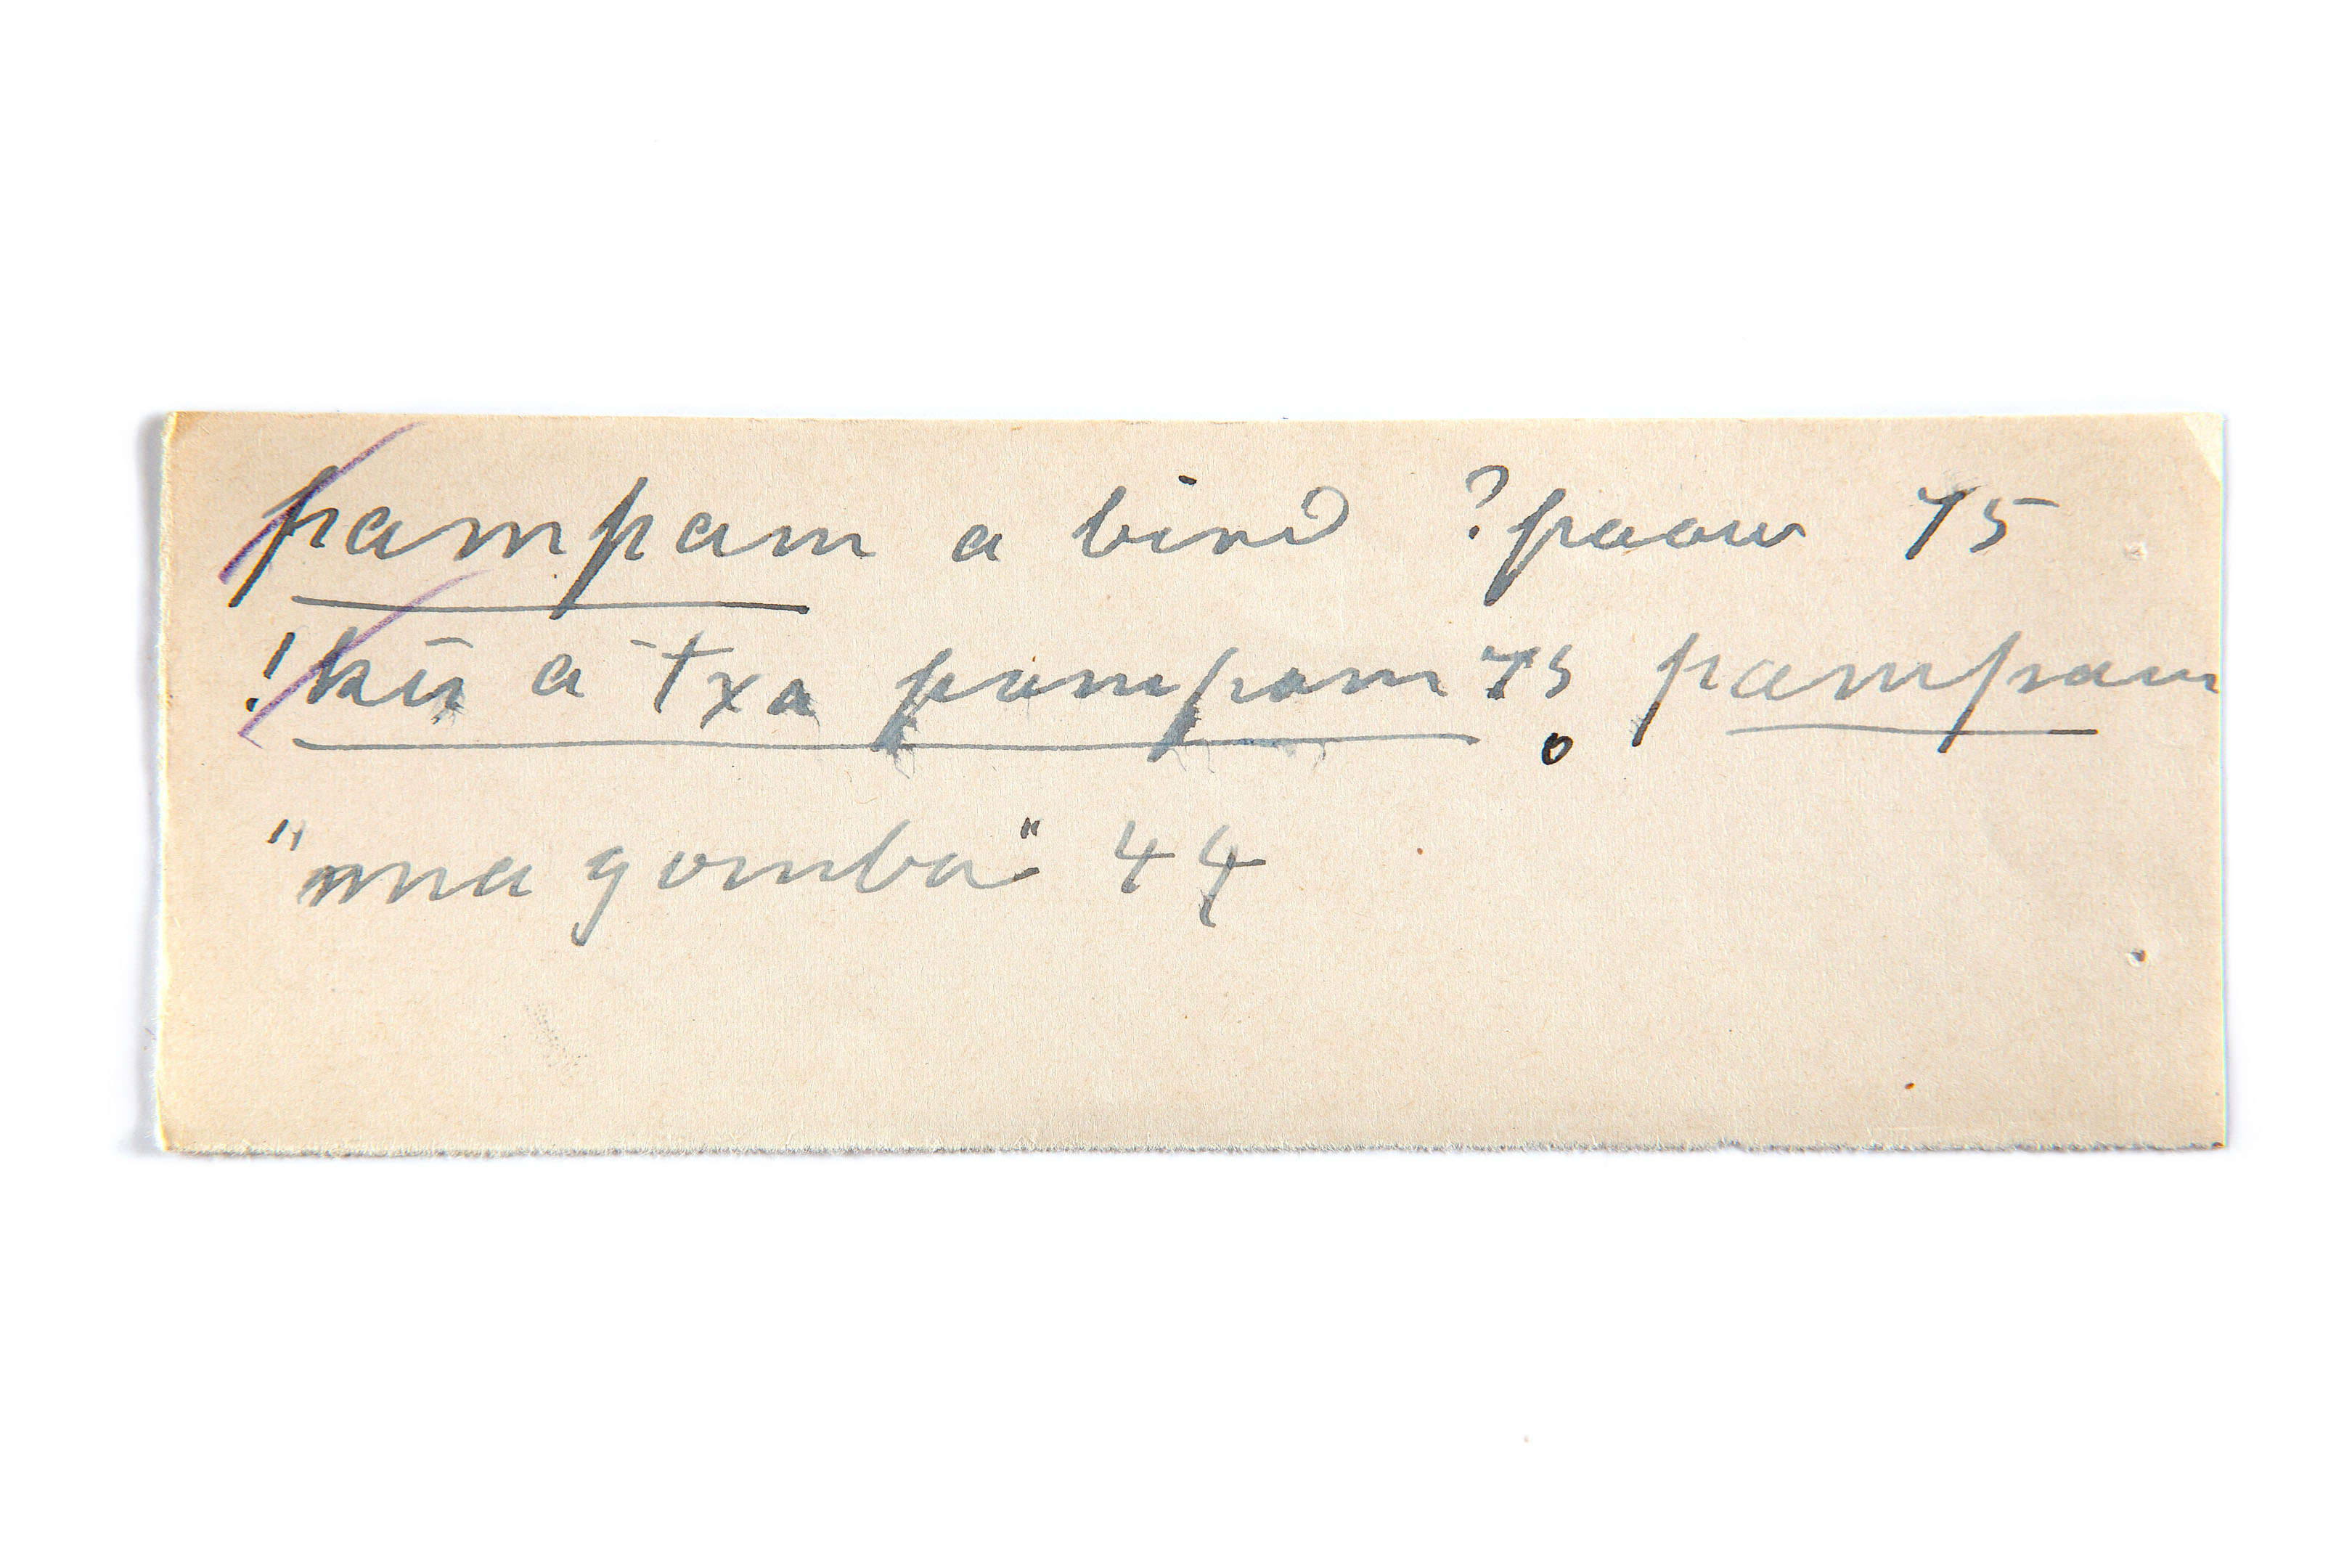 pampam a bird ?paauw 75
!kū a txa pampam 75 pampam
"magomba" 44